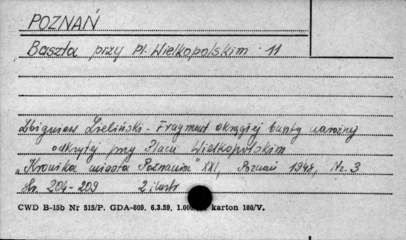 POZNAŃ
Baszta przy Pl. Wielkopolskim 11
Zbigniew Zieliński - Fragment okrągłej baszty narożnej
odkrytej przy Placu Wielkopolskim
"Kronika miasta Poznania" XXI, Poznań 1948, Nr. 3
str. 204-209 2 ilustr
CWD B-15b Nr 515/P. GDA-809, 6.3.59, 1.00 karton 180/V.